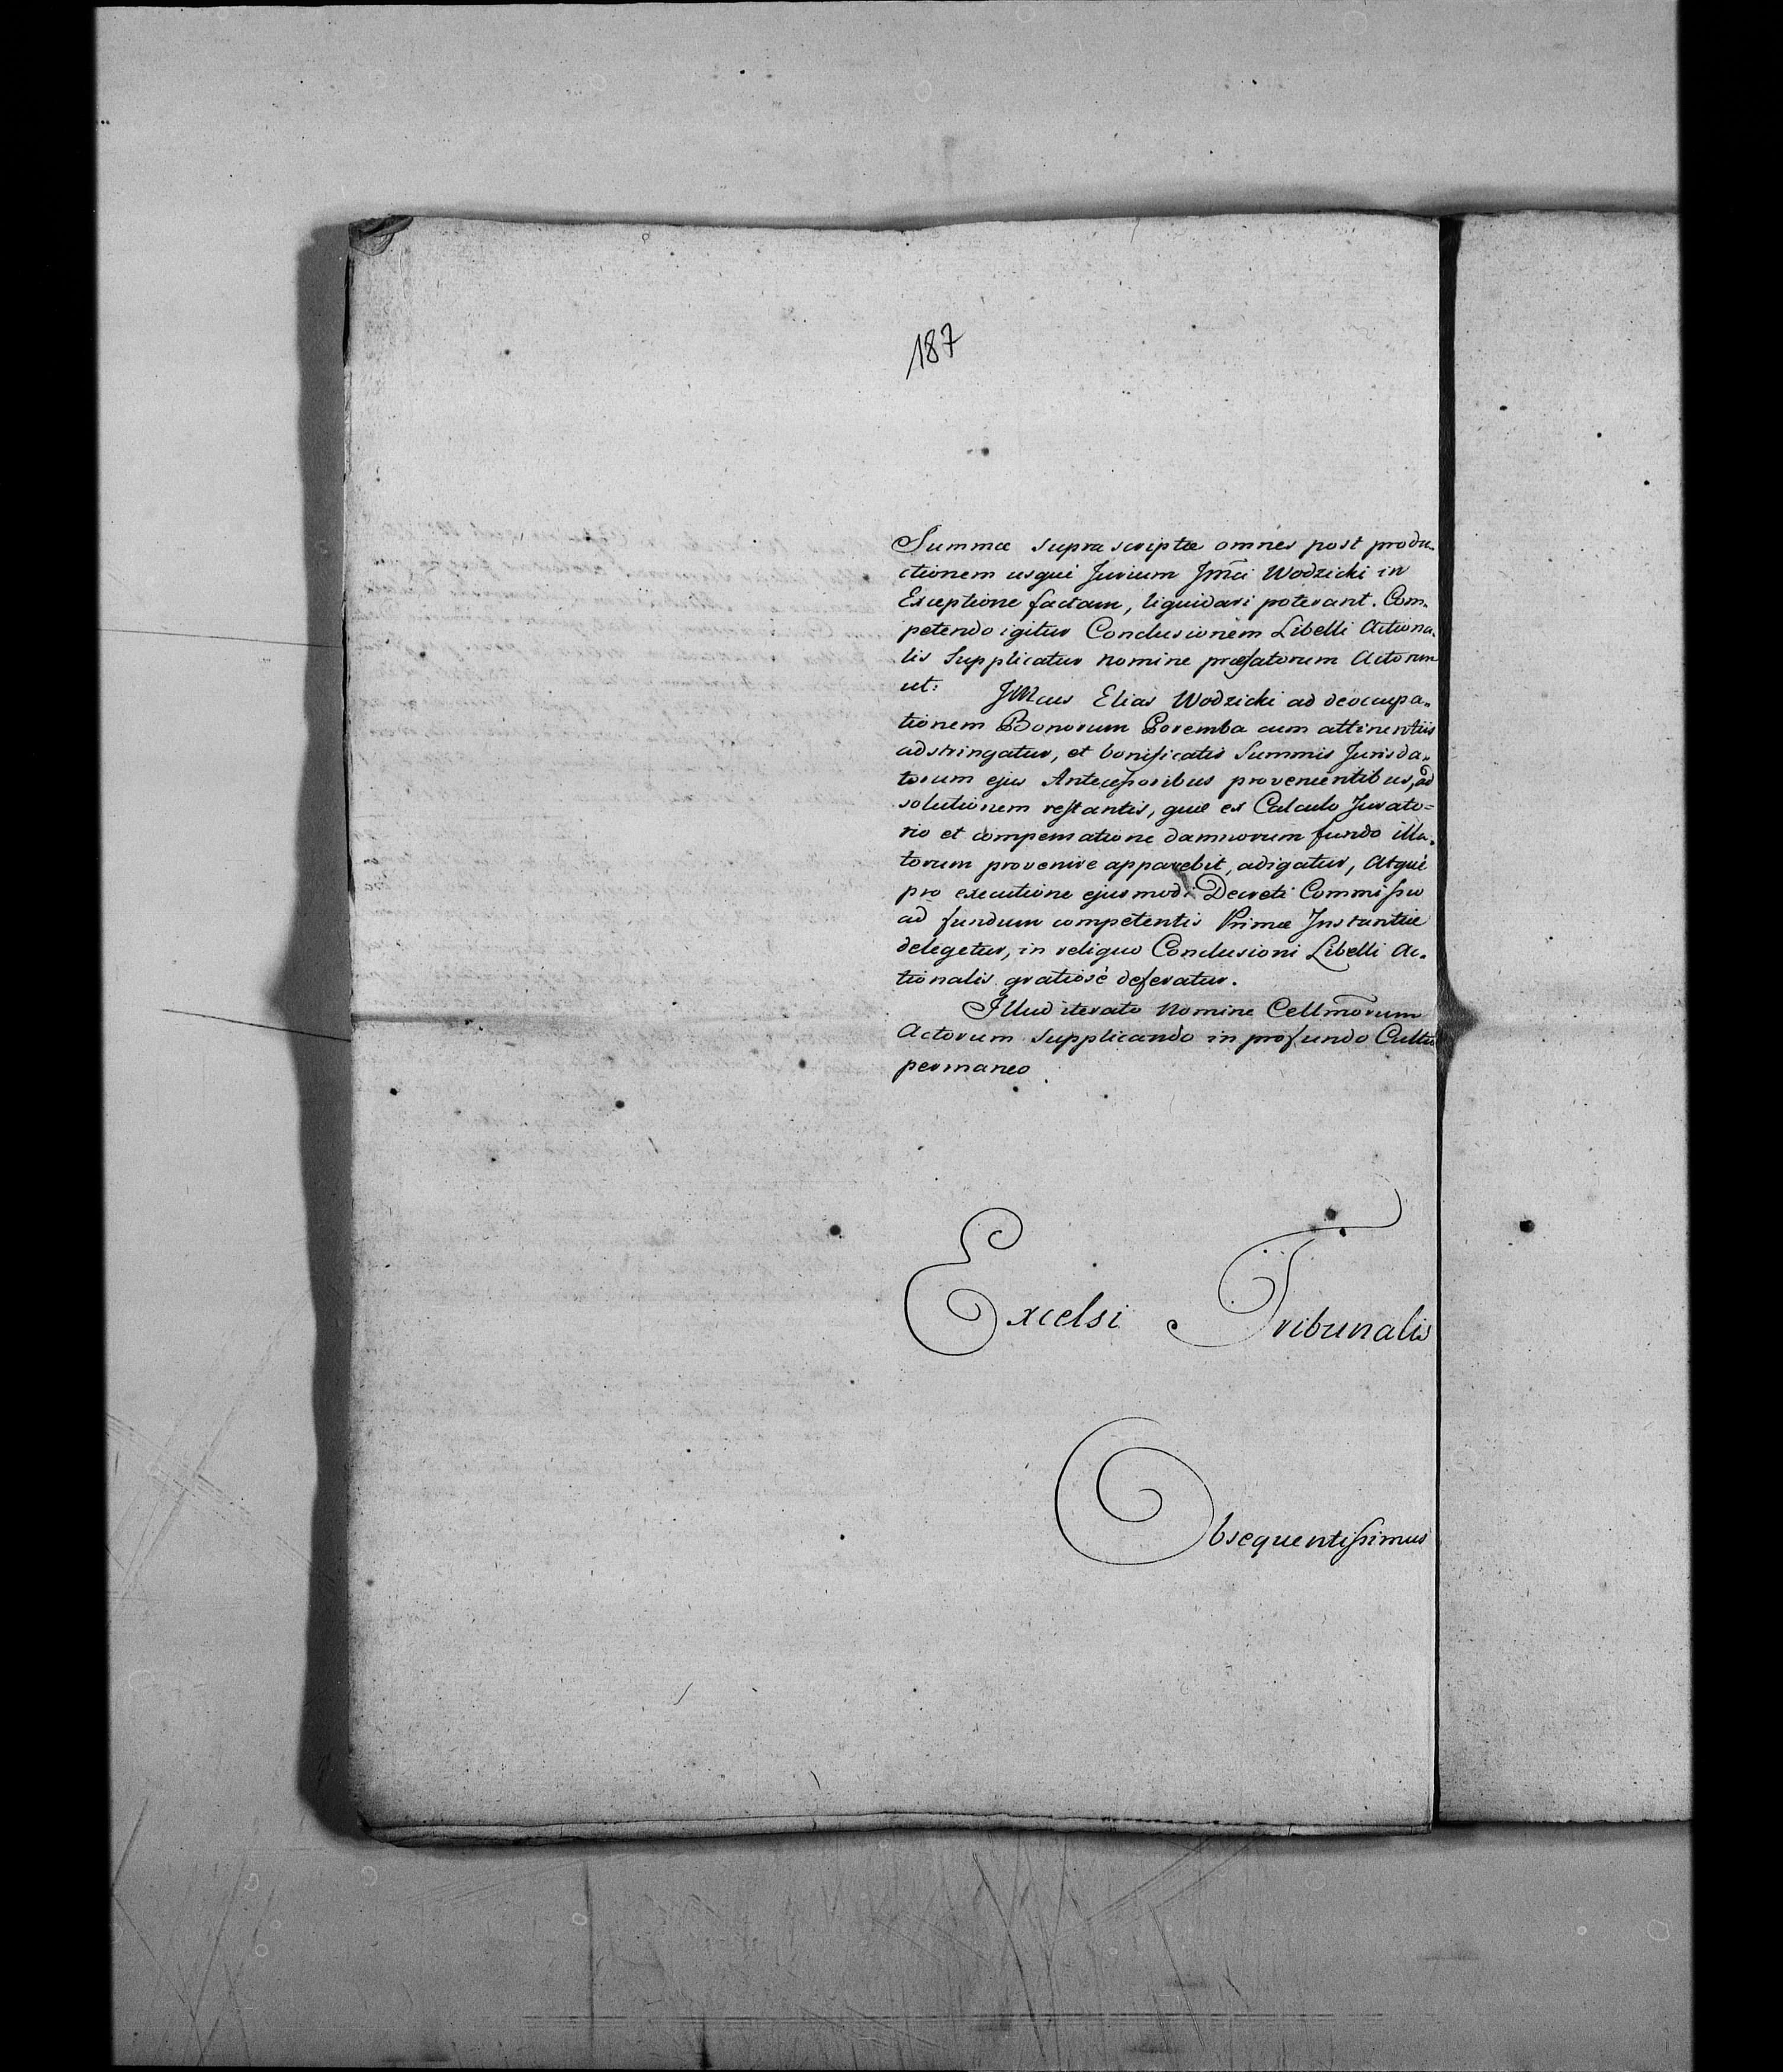 187
Summæ supra scriptæ omnes post produ-
ctionem usquè Jurium Jm̃ci Wodzicki in
Exceptione factam, liquidari poterant. Com-
petendo igitur Conclusionem Libelli Actiona-
lis supplicatur nomine præfatorum Actorum
ut: JMcus Elias Wodzicki ad deoccupa-
tionem Bonorum Poremba cum attinentiis
adstringatur, et bonificatis Summis Jurisda-
torum ejus Antecessoribus provenientibus, ad
solutionem restantis, quæ ex Calculo Jurato=
rio et compensatione damnorum fundo illa-
torum provenire apparebit, adigatur, Atquè
pro executione ejusmodi Decreti Commissio
ad fundum competentis Primæ Instantiæ
delegetur, in reliquo Conclusioni Libelli Ac-
tionalis gratiosè deferatur.
Illud iterato Nomine Cellm̃orum
Actorum supplicando in profundo Cultu
permaneo
Excelsi Tribunalis
Obsequentissimus